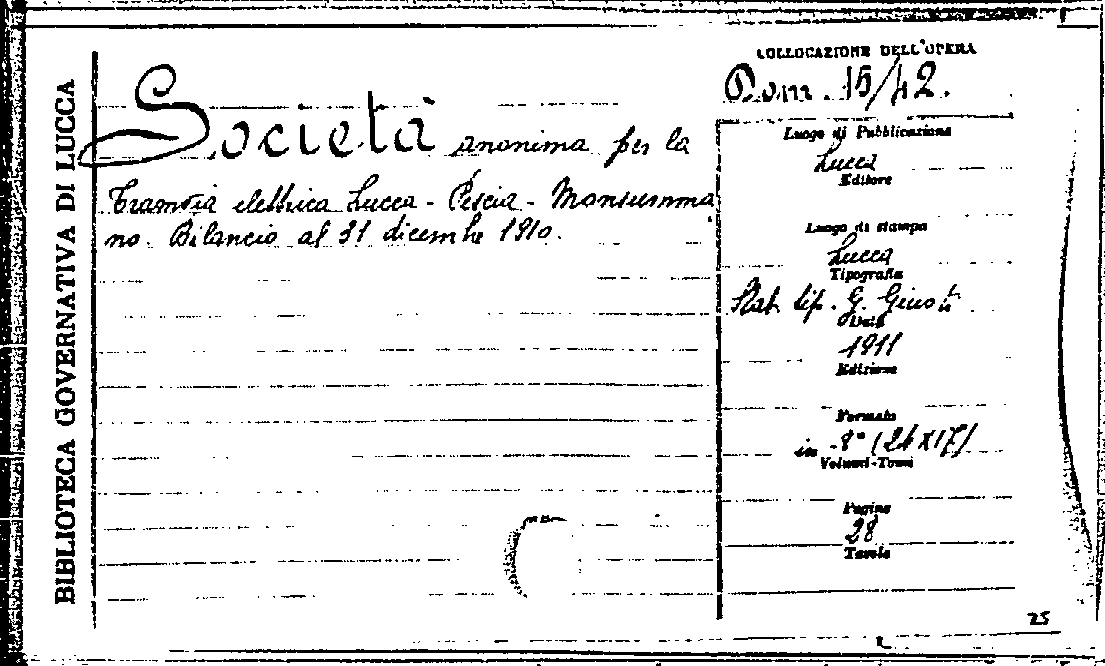 BIBLIOTECA GOVERNATIVA DI LUCCA
Società anonima per la
Tramvia elettrica Lucca - Pescia - Monsumma
no. Bilancio al 31 dicembre 1910.
COLLOCAZIONE DELL'OPERA
Dom. 15/42.
Luogo di Pubblicazione
Lucca
Editore
Luogo di stampa
Lucca
Tipografia
Stab. tip. G. Giusti
Data
1911
Edizione
Formato
in -8° (24X17)
Volumi-Tomi
Pagine
28
Tavole
25